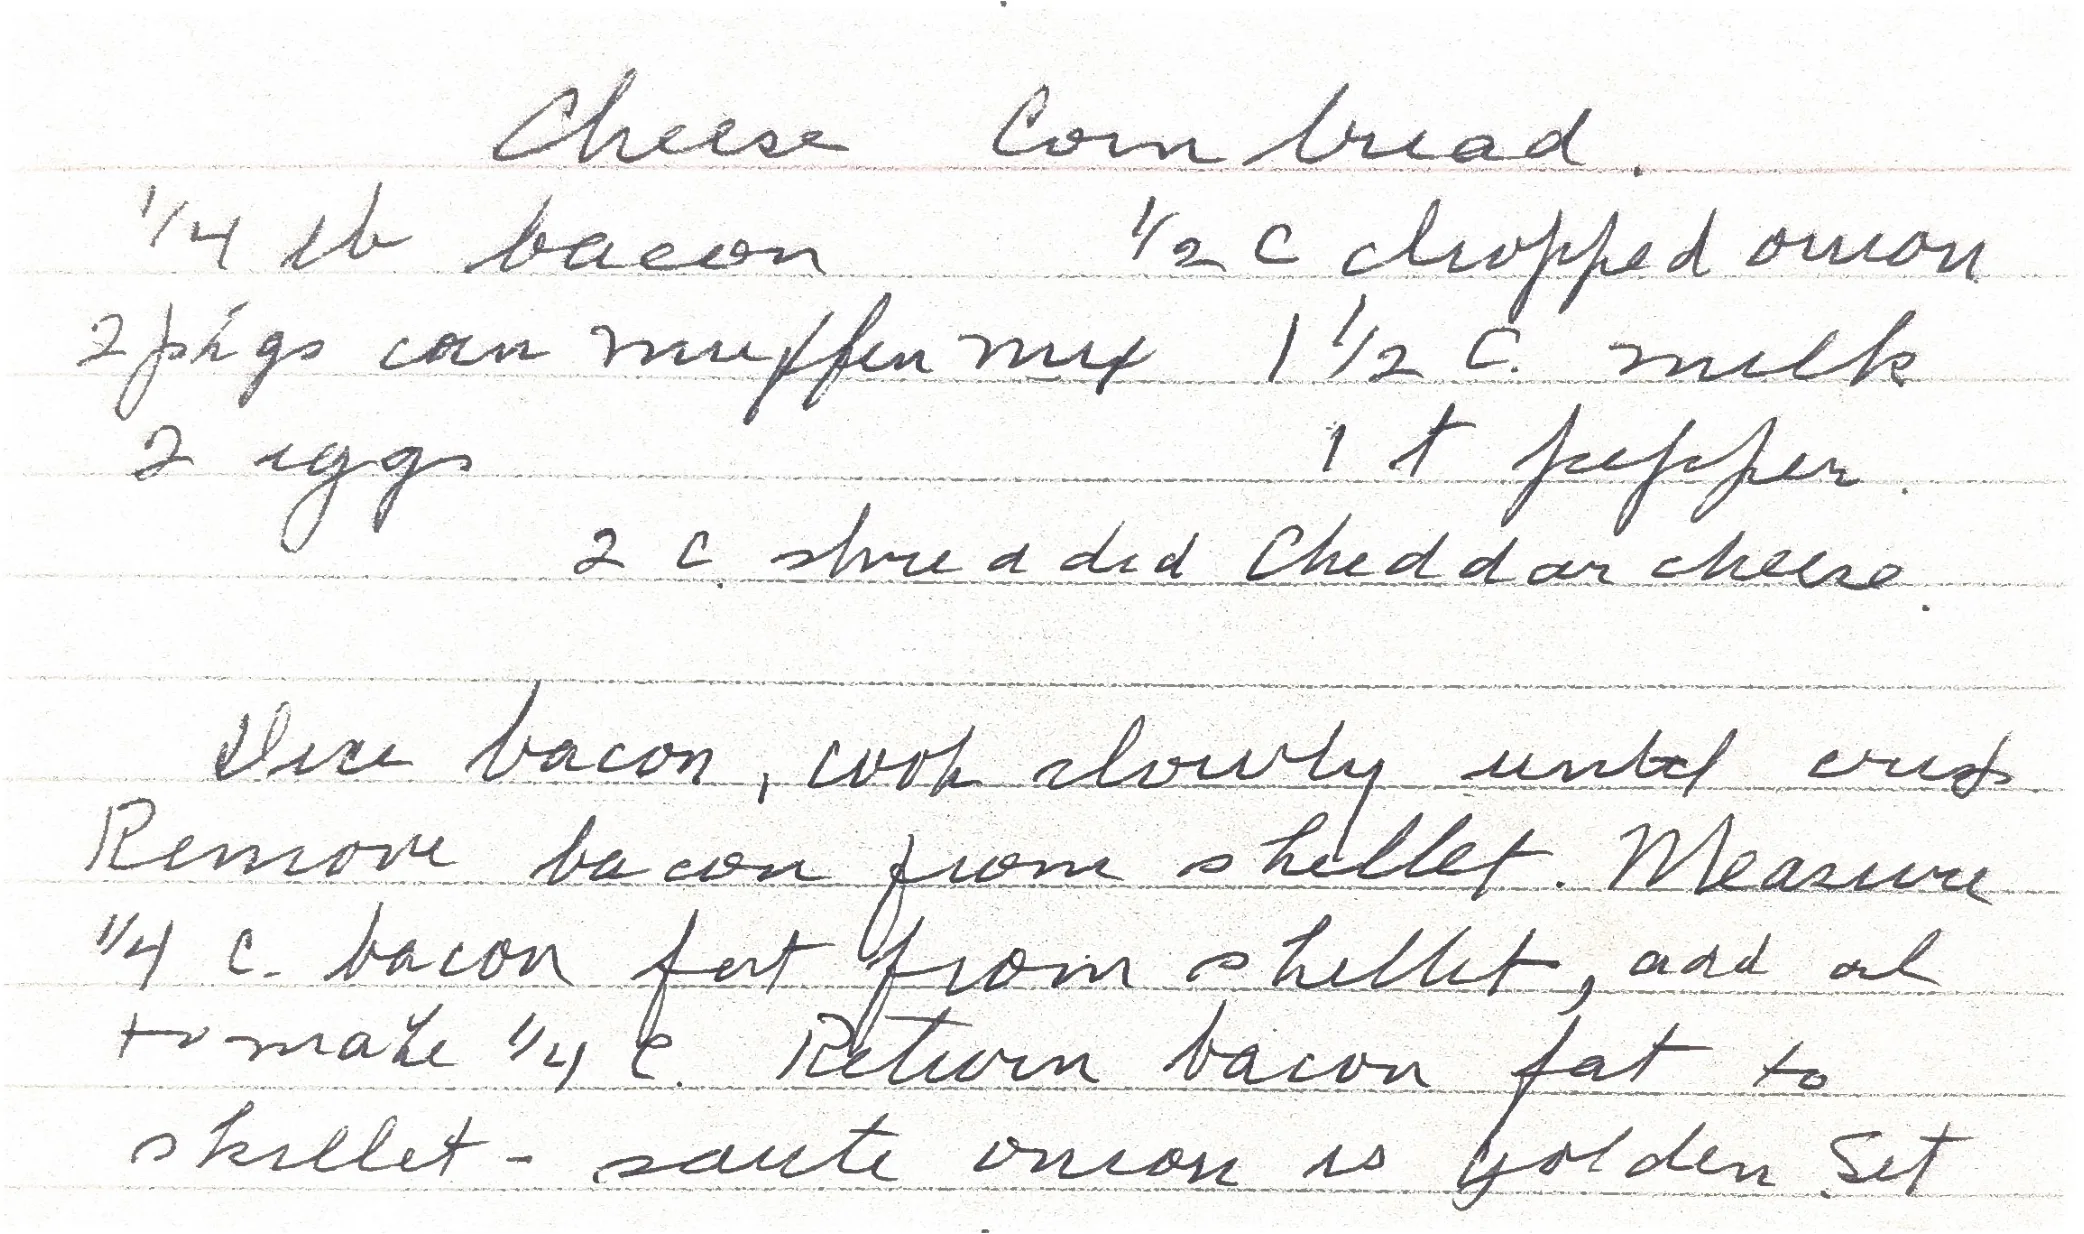 Cheese Corn bread.
1/4 lb bacon 1/2 c chopped onion
2 pkgs corn muffin mix 1 1/2 c. milk
2 eggs 1 t pepper.
2 c. shredded Cheddar cheese.
Dice bacon, cook slowly until crisp
Remove bacon from skillet. Measure
1/4 c. bacon fat from skillet, add oil
to make 1/4 c. Return bacon fat to
skillet - saute onion is golden Set